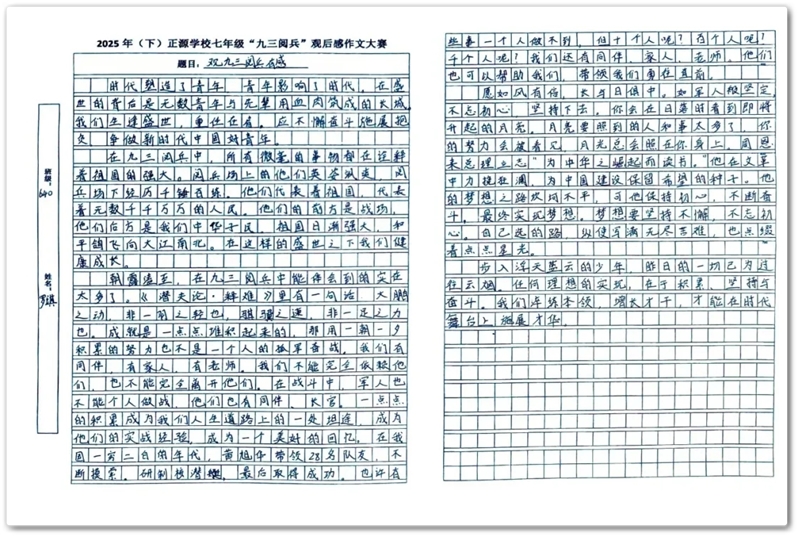 2025年（下）正源学校七年级“九三阅兵”观后感作文大赛
题目：观九三阅兵有感
班级：
640
姓名：
时代塑造了青年，青年影响了时代。在盛
世的背后是无数青年与先辈用血肉筑成的长城。
我们生逢盛世，重任在肩。应不懈奋斗施展抱
负，争做新时代中国好青年。
在九三阅兵中，所有微毫的事物都在诠释
着祖国的强大。阅兵场上的他们英姿飒爽，阅
兵场下经历千锤百练。他们代表着祖国，代表
着无数千千万万的人民。他们的前方是战功，
他们后方是我们中华子民。祖国日渐强大，和
平鸽飞向大江南北。在这样的盛世之下我们健
康成长。
朝露凌至，在九三阅兵中能体会到的实在
太多了。《潜夫论·释难》里有一句话“大鹏
之动，非一羽之轻也，骐骥之速，非一足之力
也。成就是一点点堆积起来的，那用一朝一夕
积累的努力也不是一个人的孤军奋战。我们有
同伴，有家人，有老师。我们不能完全依赖他
们，也不能完全离开他们。在战斗中，军人也
不能个人做战，他们也有同伴，长官。一点点
的积累成为我们人生道路上的一处坦途，成为
他们的实战经验，成为一个美好的回忆。在我
国一穷二白的年代，黄旭华带领28名队友，不
断摸索，研制核潜艇，最后取得成功。也许有
些事一个人做不到，但十个人呢？百个人呢？
千个人呢？我们还有同伴，家人，老师。他们
也可以帮助我们，带领我们勇往直前。
愿如风有信，长与日俱中。如军人般坚定，
不忘初心，坚持下去。你会在日幕时看到即将
升起的月亮。月亮要照到的人和事太多了，你
的努力会被看见，月光总会照在你身上。周恩
来总理立志“为中华之崛起而读书。”他在文革
中力挽狂澜，为中国建设保留希望的种子。他
的梦想之路坎坷不平，可他保持初心，不断奋
斗。最终实现梦想。梦想要坚持不懈，不忘初
心。自己选的路，纵使写满无尽苦难，也点缀
着点点星光。
步入浮天墨云的少年，昨日的一切已为过
往云烟。任何理想的实现，在于积累，坚持与
奋斗。我们淬练本领，增长才干，才能在时代
舞台上施展才华。